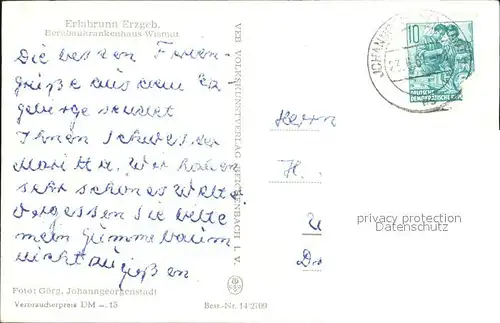 Erlabrunn Erzgeb.
Bergbaukrankenhaus Wismut
Die besten Ferien-
grüße aus dem Erz
gebirge sendet
Ihnen Schwester
Maritta. Wir haben
sehr schönes Wetter
vergessen Sie bitte
mein Gummibaum
nicht zu gießen
Foto: Görg, Johanngeorgenstadt
Verbraucherpreis DM -.15
Best.-Nr. 14/2709
VEB VOLKSKUNSTVERLAG REICHENBACH I. V.
10
DEUTSCHE
DEMOKRATISCHE
Herrn
H.
privacy protection
Datenschutz